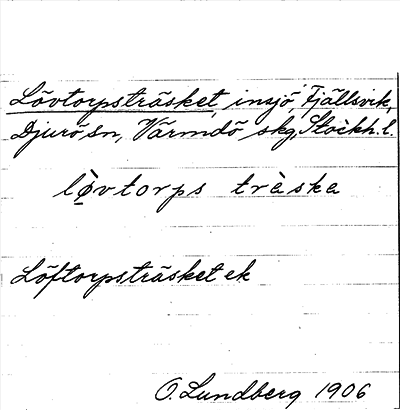 Lövtorpsträsket, insjö, Fjällsvik,
Djurö sn, Värmdö skg, Stockh. l.
lø̀vtorps trȧ̀ska
Löftorpsträsket ek
O. Lundberg 1906